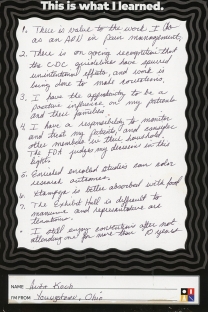 This is what I learned.
1. There is value to the work I do
as an APN in pain management.
2. There is on going recognition that
the CDC guidelines have spurred
unintentional effects, and work is
being done to make corrections.
3. I have the opportunity to be a
positive influence on my patients
and their families
4. I have a responsibility to monitor
and treat my patients and consider
other members in their household.
The FDA judges my decisions in this
light.
5. Enriched enrolled studies can color
research outcomes.
6. Xtampza is better absorbed with food
7. The Exhibit Hall is difficult to
maneuver and representatives are
tenacious.
I still enjoy conventions after not
attending one for more than 10 years
NAME
I'M FROM Youngstown, Ohio